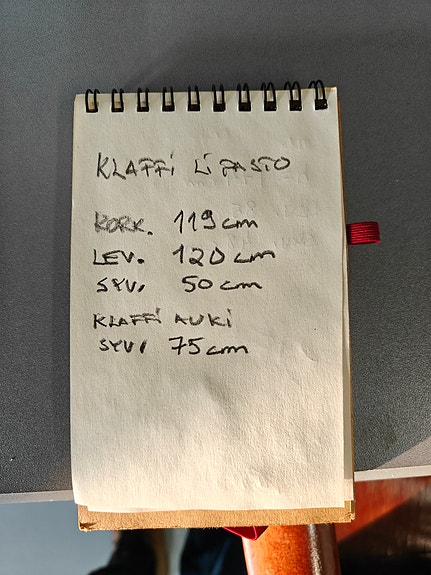 KLAFFi LiPASTO
KORK. 119cm
LEV. 120cm
SYV. 50cm
KLAFFi AUKi
SYV. 75cm